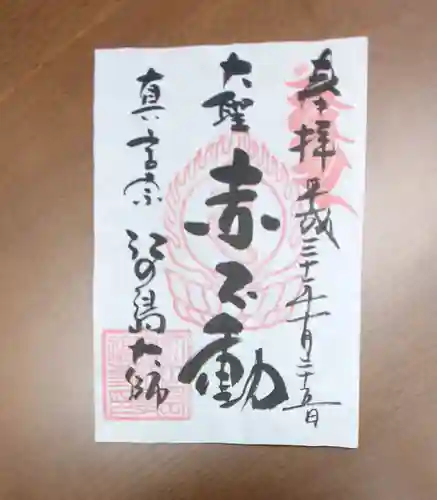 奉拝 平成三十一年一月二十五日
大聖 赤不動
真言宗 江の島大師